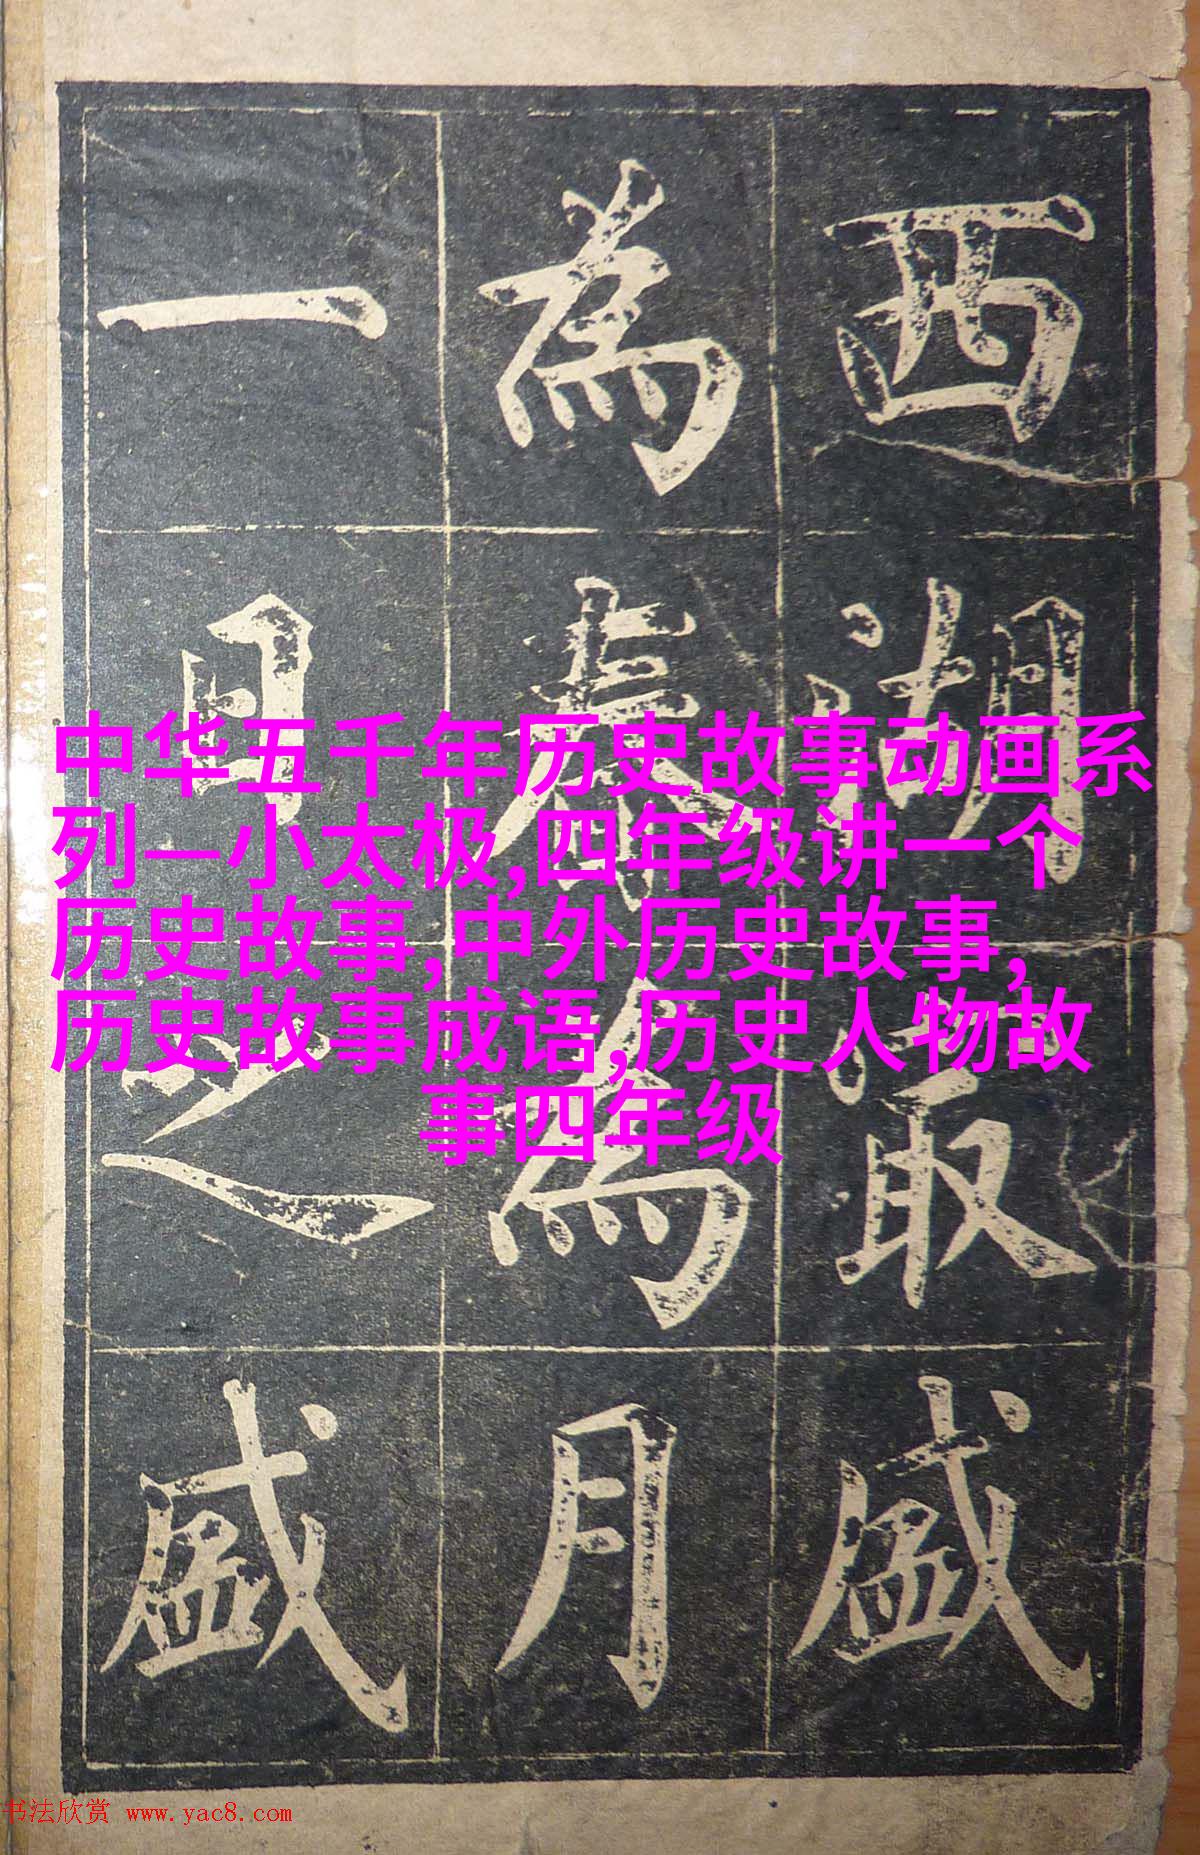 西湖最盛
為春為月
一日之盛
中华五千年历史故事动画系
列—小太极,四年级讲一个
历史故事,中外历史故事,
历史故事成语,历史人物故
事四年级
书法欣赏 www.yac8.com